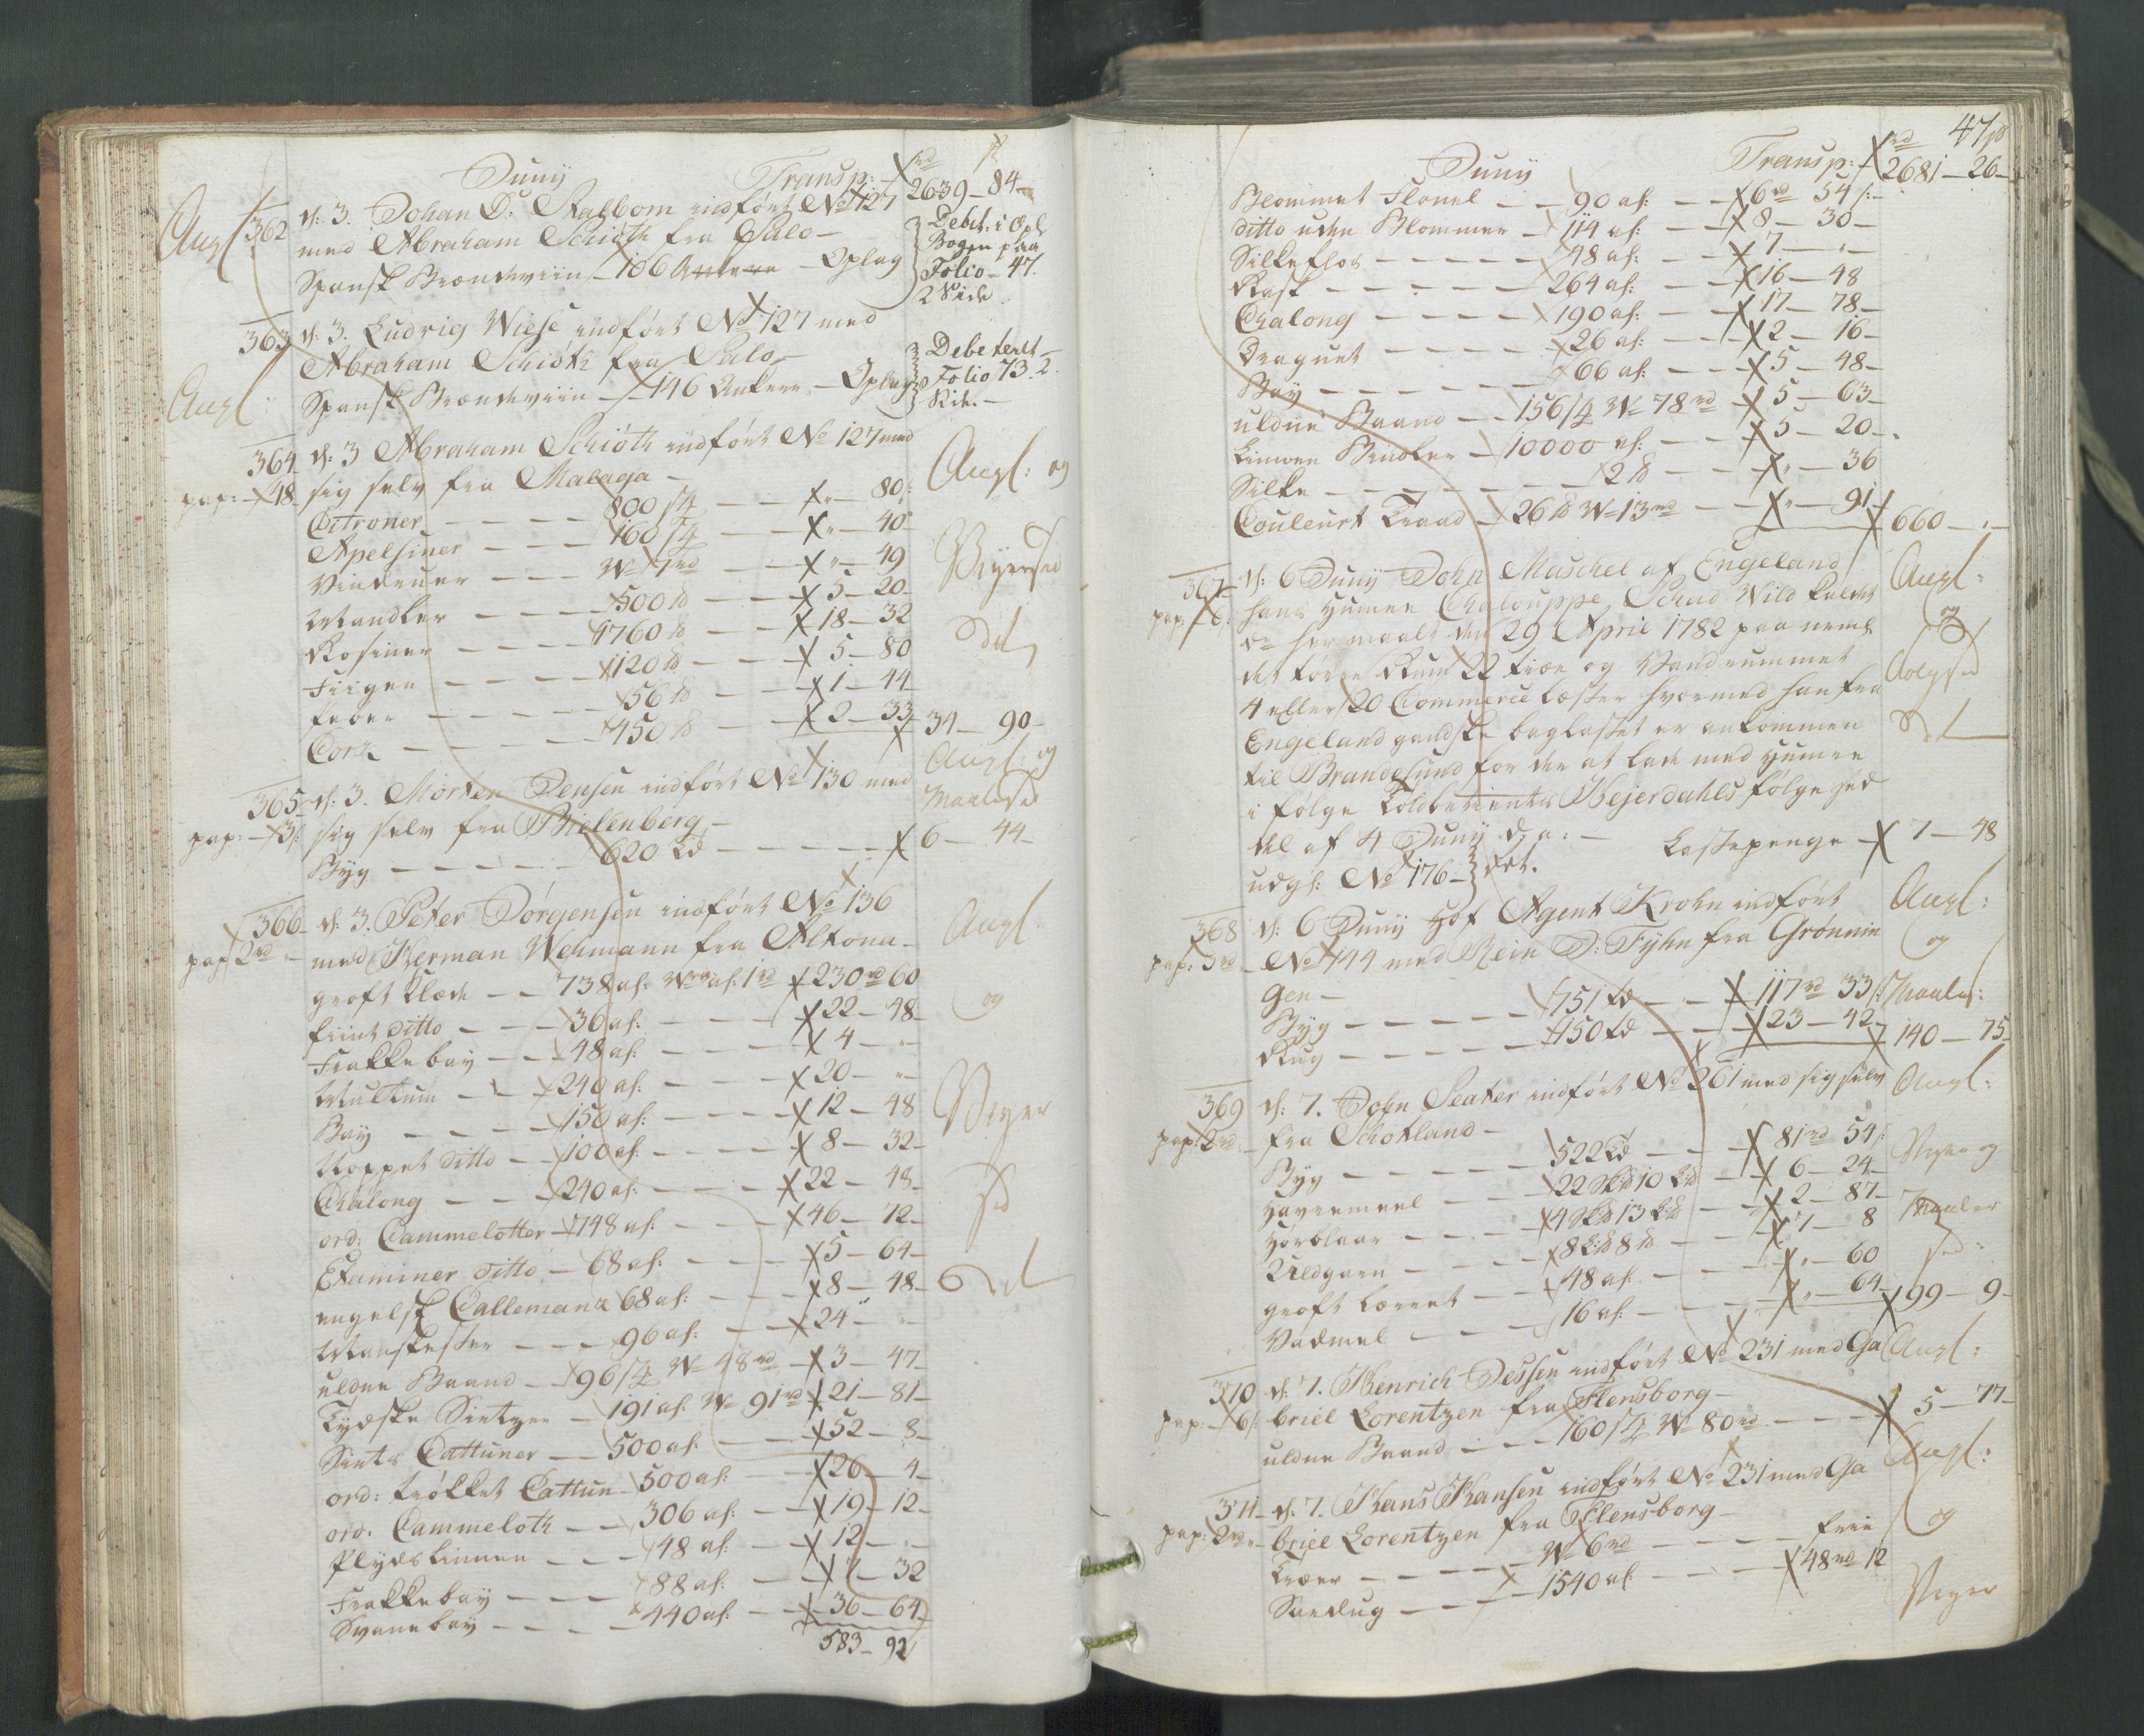 Juny Transp: rd 2639 - 84
Angl 362 d: 3. Johan D: Kalbom indført No 127
med Abraham Schiöth fra Salo -
Spansk Brændeviin - 106 Ankere - Oplag
Debet: i Opl
Bogen paa
Folio - 47.
2 Side
363 d: 3. Ludvig Wiese indført No 127 med
Abraham Schiöth fra Salo -
Angl Spansk Brændeviin - 146 Ankere - Oplag
Debeteret
Folio 73. 2
Side. -
364 d: 3 Abraham Schiöth indført No 127 med
pap: - 48 sig selv fra Malaga - Angl: og
Citroner - 800 st - " - 80
Apelsiner - 160 st - " - 40
Vindruer - W 7 rd - " - 49
Mandler - 500 lb - 5 - 20 -
Rosiner - 1760 lb - 18 - 32
Fiigen - 1120 lb - 5 - 80
- 56 lb - 1 - 44
Cork - 450 lb - 2 - 33 34 - 90 -
365 d: 3. Morten Jensen indført No 130 med Angl: og
pap: - 3 sig selv fra Bielenberg -
Byg - 620 td - 6 - 44 -
366 d: 3. Peter Jörgensen indført No 136
pap 2 rd - med Herman Wehmann fra Altona - Angl
groft Klæde - 738 al: 1 rd 230 rd 60
fiint ditto - 36 al: - 22 - 48 - og
Frakke bay - 48 al: - 4 - "
Multum - 240 al: - 20 - " -
Bay - 150 al: - 12 - 48
Noppet ditto - 100 al: - 8 - 32 -
Chalong - 240 al: - 22 - 48 -
ord: Cammelotter - 748 al: - 46 - 72 -
Etaminer ditto - 68 al: - 5 - 64 -
engelsk Callemank 68 al: - 8 - 48 -
Manskester - 96 al: - 24 - "
uldne Baand - 96 st W 48 rd - 3 - 47 -
Tydske Sirtzer - 191 al W 91 rd 21 - 81 -
Sirts Cattuner - 500 al: - 52 - 8 -
ord: trökket Cattun - 500 al: - 26 - 4 -
ord: Cammeloth - 306 al: - 19 - 12 -
Plydslinnen - 48 al: - 12 - " -
Frakke bay - 88 al: - 7 - 32
Svanebay - 440 al: - 36 - 64
583 - 92
47
Juny Transp: rd 2681 - 26 -
Blommet Flonel - 90 al: - 6 rd 54
ditto uden Blommer - 114 al: - 8 - 30 -
Silkeflor - 48 al: - 7 - " -
Rask - 264 al: - 16 - 48
Chalong - 190 al: - 17 - 78 -
Droguet - 26 al: - 2 - 16 -
Bay - 66 al: - 5 - 48 -
uldne Baand - 156 st W 78 rd - 5 - 63 -
10000 - 5 - 20 -
Silke - 2 lb - " - 36
Couleurt Traad - 26 lb W 13 rd - " - 91 660 - " -
367 d: 6 Juny John Maschel af Engeland Angl:
pap: 6 hans Chalouppe Wild kaldet og
er her maalt den 29 April 1782 paa
det större Rum 22 fire og Vandrummet
4 eller 20 Commerce Læster hvormed han fra
Engeland gandske baglastet er ankommen
til Brandesund for der at lade med
i følge Toldbetients Hejerdahls følge sed
del af 4 Juny d: a: - Lastepenge - 7 - 48
udgl: No 176
368 d: 6 Juny Hof Agent Krohn indført Angl:
pap: 3 rd No 144 med Rein D: Fyhn fra Grønnin og
gen -
Byg - 751 td - 117 rd 33
Rug - 150 td - 23 - 42 140 - 75
369 d: 7. John Seater indført No 261 med sig selv Angl:
pap: 2 rd fra Schotland -
Byg - 522 td - 81 rd 54
Havremeel - 22 10 - 6 - 24
Hörblaar - 4 13 - 2 - 87 -
Uldgarn - 8 8 lb - 7 - 8
groft Lærret - 48 al: - " - 60
Vadmel - 16 al: - " - 64 99 - 9 -
370 d: 7. Henrich Jessen indført No 231 med Ga Angl:
pap: - 6 briel Lorentzen fra Flensborg -
uldne Baand - 160 st W 80 rd - 5 - 77 -
371 d: 7. Hans Hansen indført No 231 med Ga Angl:
pap: 2 rd briel Lorentzen fra Flensborg - og
- W 6 rd - frie
Seildug - 1540 al - 48 rd 12
Vejer